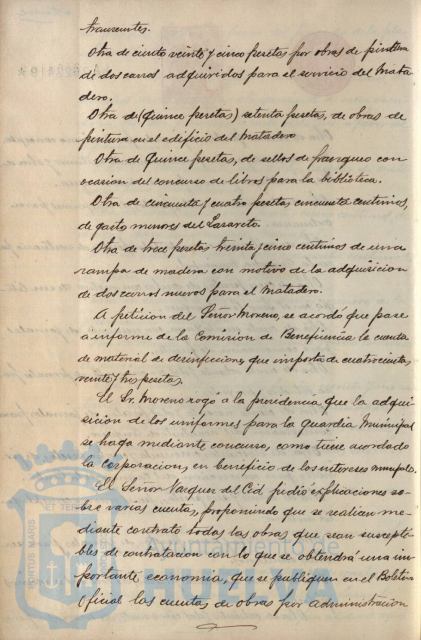 transeuntes.
Otra de ciento veinte y cinco pesetas por obras de pintura
de dos carros adquiridos para el servicio del Mata
dero.
Otra de (Quince pesetas) setenta pesetas, de obras de
pintura en el edificio del Matadero
Otra de Quince pesetas, de sellos de franqueo con
ocasion del concurso de libros para la biblioteca.
Otra de cincuenta y cuatro pesetas cincuenta centimos,
de gasto menores del Lazareto.
Otra de trece pesetas treinta y cinco centimos de una
rampa de madera con motivo de la adquisicion
de dos carros nuevos para el Matadero.
A peticion del Señor Moreno, se acordó que pase
á informe de la Comision de Beneficencia la cuenta
de material de desinfecciones, que importa de cuatrocientas
veinte y tres pesetas.
El Sr. Moreno rogó á la presidencia que la adqui
sicion de los uniformes para la guardia Municipal
se haga mediante concurso, como tiene acordado
la corporacion, en beneficio de los intereses municipales.
El Señor Vazquez del Cid pidió explicaciones so-
bre varias cuentas, proponiendo que se realicen me-
diante contrato todas las obras que sean suscepti-
bles de contratacion con lo que se obtendrá una im-
portante economia, que se publiquen en el Boletin
oficial las cuentas de obras por administracion
PORTUS MARIS
ET TERRAE
HUELVA